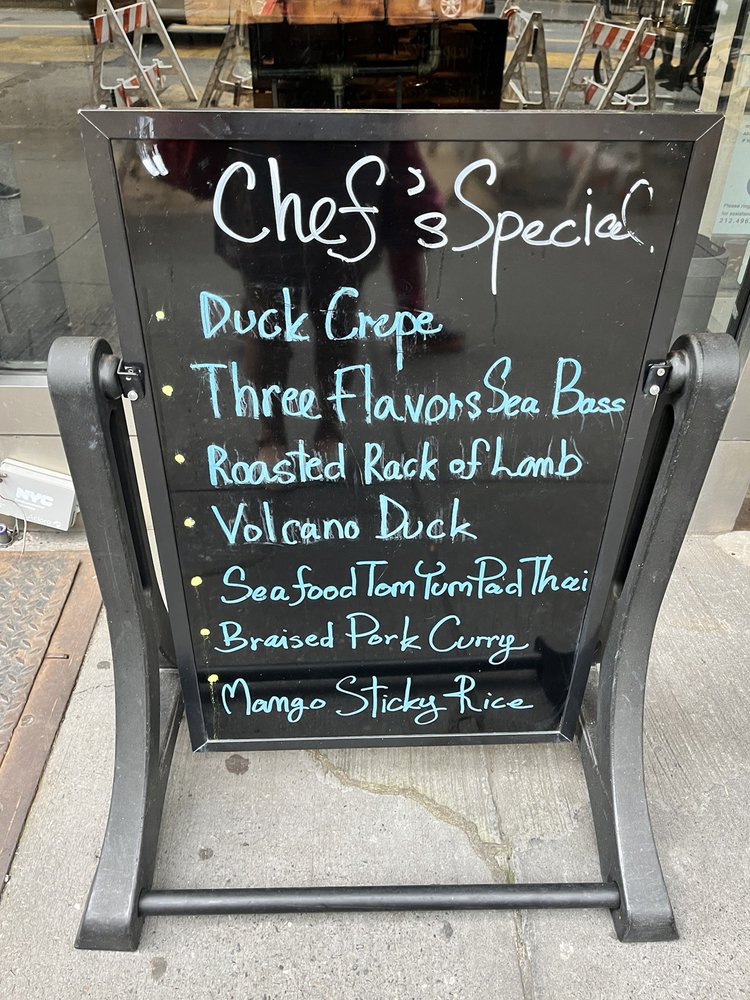 Chef's Special
Duck Crepe
Three Flavors Sea Bass
Roasted Rack of Lamb
Volcano Duck
Seafood Tom Yum Pad Thai
Braised Pork Curry
Mango Sticky Rice
NYC